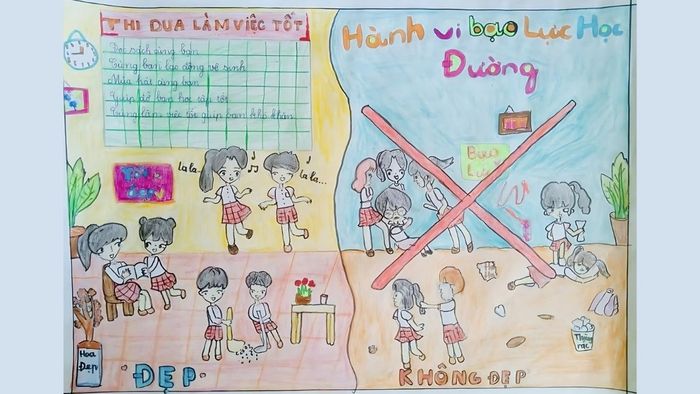 THI ĐUA LÀM VIỆC TỐT
Đọc sách cùng bạn
Cùng bạn lao động vệ sinh
Múa hát cùng bạn
Giúp đỡ bạn học tập tốt
Cùng làm việc tốt giúp bạn khó khăn
la la...
la la...
Hoa
Đẹp
ĐẸP
Hành vi bạo Lực Học
Đường
Bạo
Lực
Thùng
rác
KHÔNG ĐẸP